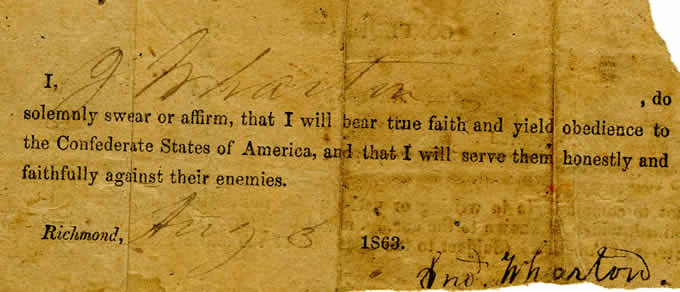 I, J Wharton, do
solemnly swear or affirm, that I will bear true faith and yield obedience to
the Confederate States of America, and that I will serve them honestly and
faithfully against their enemies.
Richmond, Aug. 1863.
Jno. Wharton.